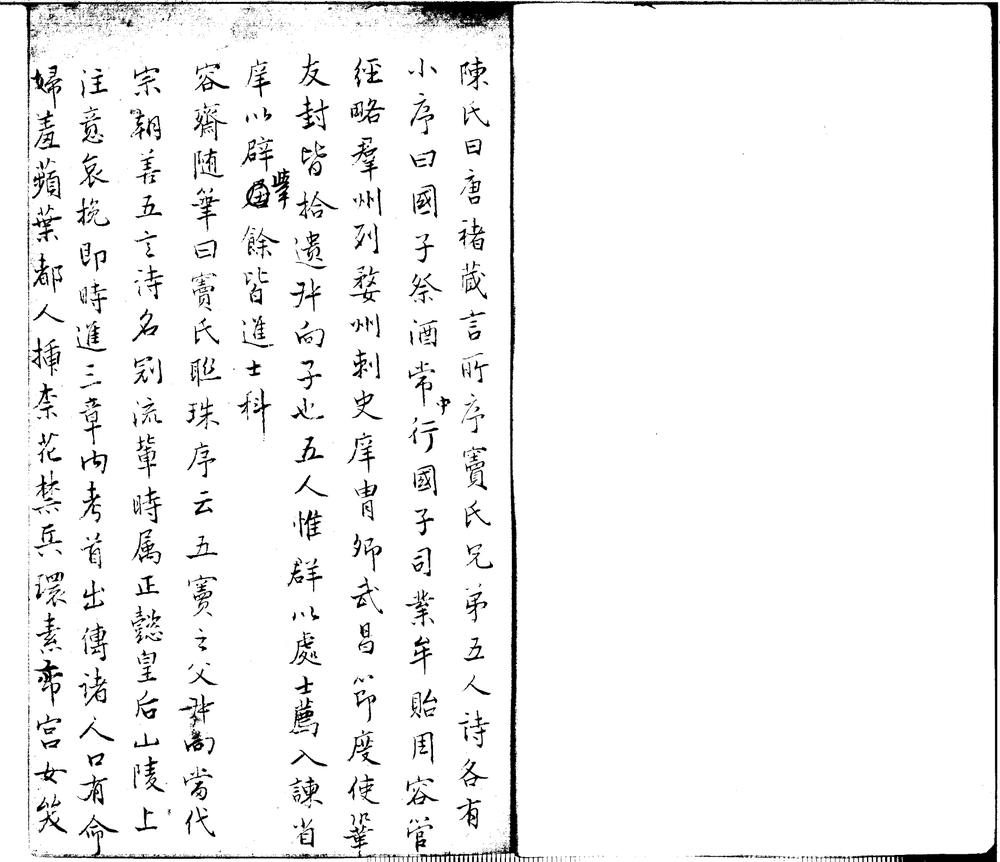 陳氏曰唐褚藏言所序竇氏兄弟五人詩各有
小序曰國子祭酒常中行國子司業牟貽周容管
經略羣州列婺州刺史庠胄卿武昌節度使鞏
友封皆拾遺叔向子也五人惟群以處士薦入諫省
庠以辟辇餘皆進士科
容齋随筆曰竇氏聮珠序云五竇之父叔向當代
宗朝善五言诗名冠流輩時属正懿皇后山陵上
注意哀挽即時進三章内考首出傳诸人口有命
婦羞蘋葉都人插柰花禁兵環素帟宮女笑